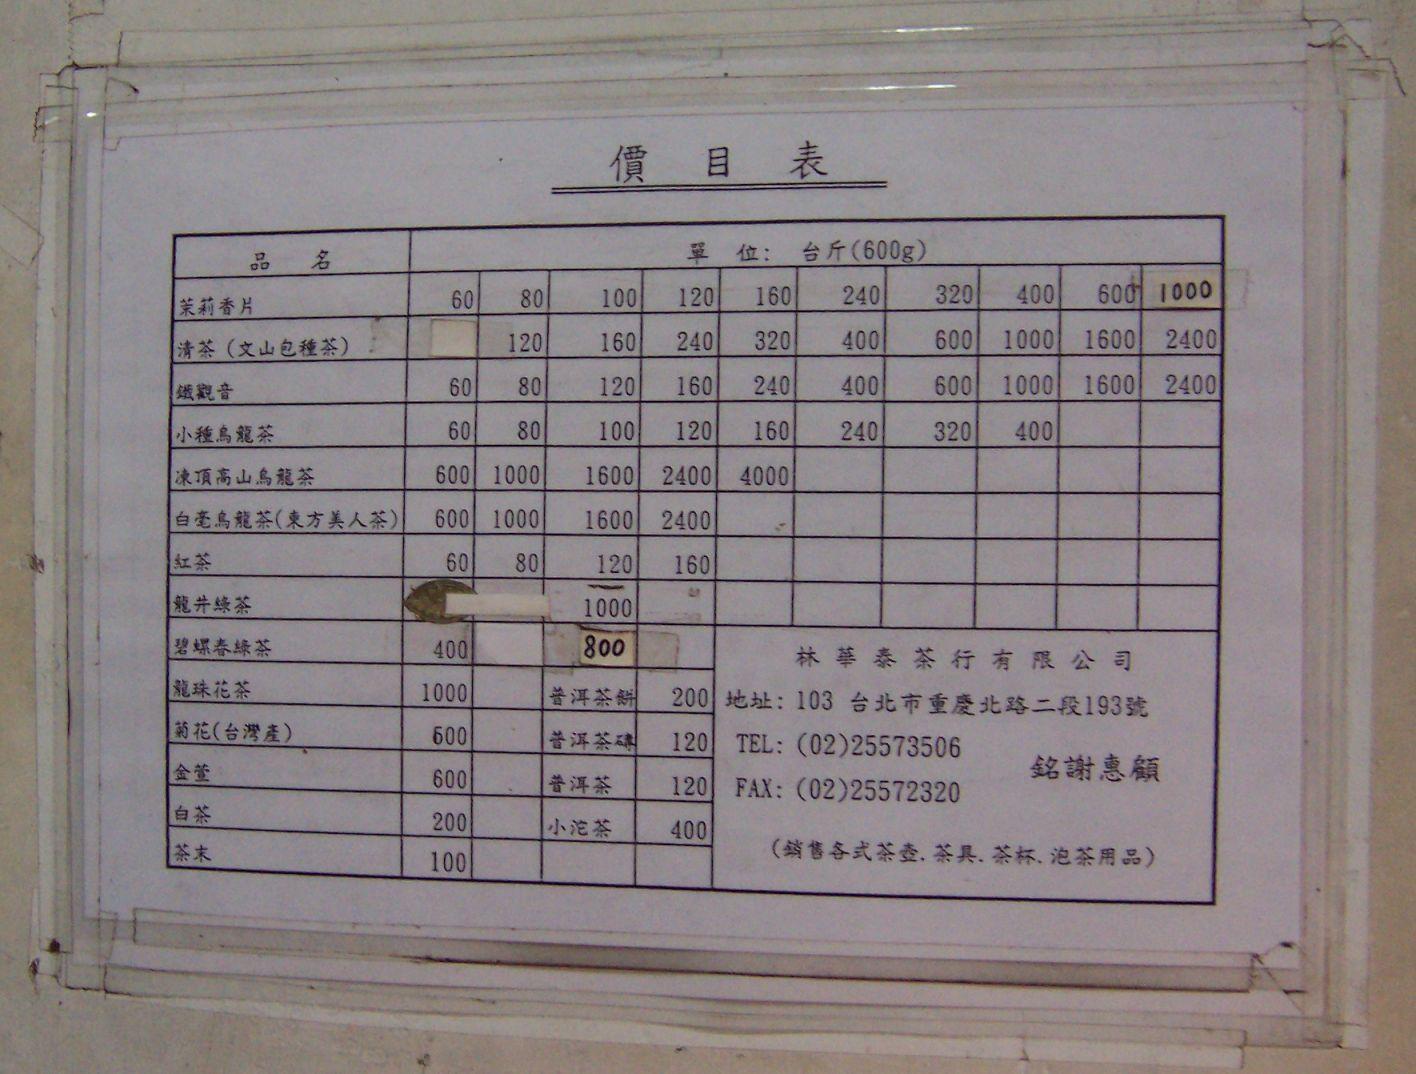 價目表
品名 單位: 台斤(600g)
茉莉香片 60 80 100 120 160 240 320 400 600 1000
清茶(文山包種茶) 120 160 240 320 400 600 1000 1600 2400
鐵觀音 60 80 120 160 240 400 600 1000 1600 2400
小種烏龍茶 60 80 100 120 160 240 320 400
凍頂高山烏龍茶 600 1000 1600 2400 4000
白毫烏龍茶(東方美人茶) 600 1000 1600 2400
紅茶 60 80 120 160
龍井綠茶 1000
碧螺春綠茶 400 800
龍珠花茶 1000 普洱茶餅 200
菊花(台灣產) 600 普洱茶磚 120
金萱 600 普洱茶 120
白茶 200 小沱茶 400
茶末 100
林華泰茶行有限公司
地址: 103 台北市重慶北路二段193號
TEL: (02)25573506
銘謝惠顧
FAX: (02)25572320
(銷售各式茶壺.茶具.茶杯.泡茶用品)